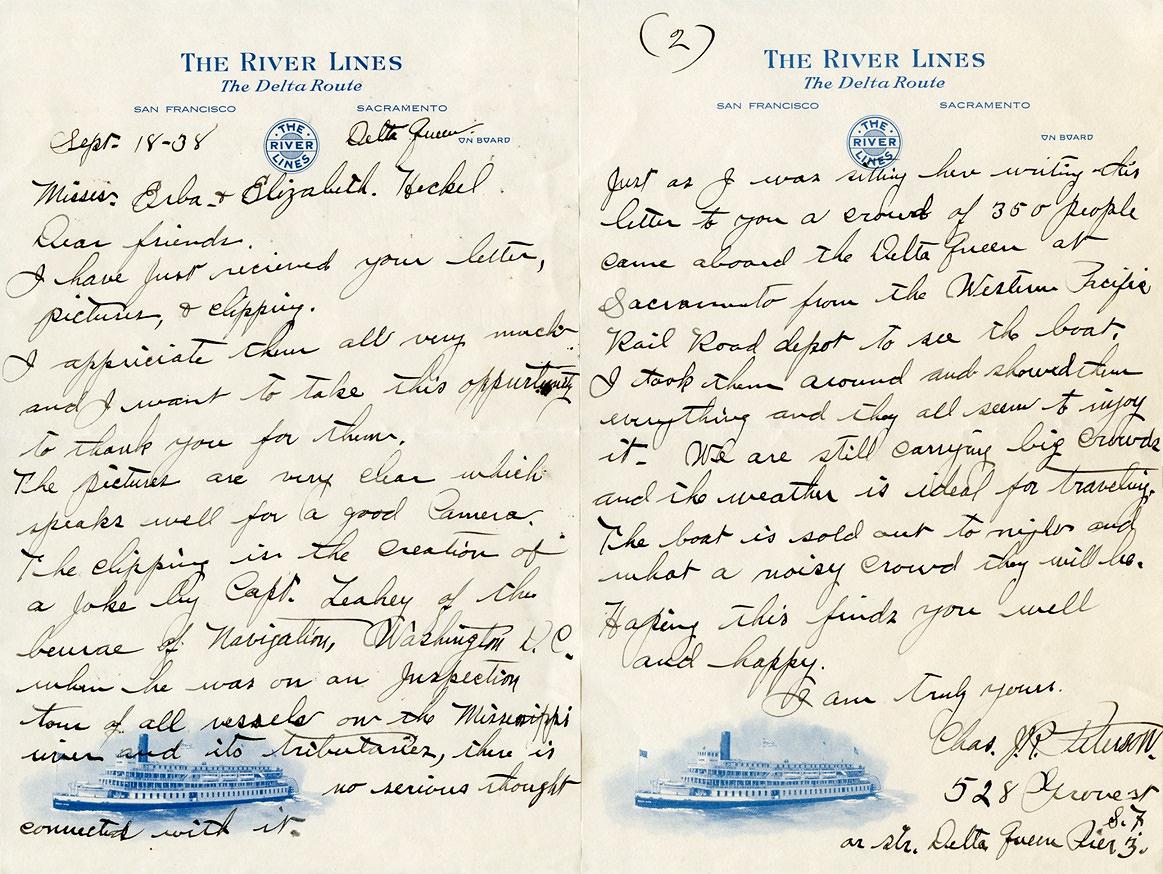 THE RIVER LINES
The Delta Route
SAN FRANCISCO SACRAMENTO
Sept- 18-38 THE RIVER LINES Delta Queen ON BOARD
Misses. Erba & Elizabeth. Heckel.
Dear friends.
I have just recieved your letter,
pictures, & clipping.
I appriciate them all very much.
and I want to take this oppurtunity
to thank you for them.
The pictures are very clear which
speaks well for a good Camera.
The clipping is the creation of
a joke by Capt. Leahey of the
beurae of Navigation, Washington D.C.
when he was on an Inspection
tour of all vessels on the Mississippi
river and its tributaries, there is
no serious thought
connected with it.
(2)
THE RIVER LINES
The Delta Route
SAN FRANCISCO SACRAMENTO
THE RIVER LINES ON BOARD
Just as I was sitting here writing this
letter to you a crowd of 350 people
came aboard the Delta Queen at
Sacramento from the Western Pacific
Rail Road depot to see the boat.
I took them around and showed them
everything and they all seem to injoy
it- We are still carrying big crowds
and the weather is ideal for traveling.
The boat is sold out to night and
what a noisy crowd they will be.
Hoping this finds you well
and happy.
I am truly yours.
Chas. J.R. Peterson.
528 Grove st
S.F
or str. Delta Queen Pier 3.